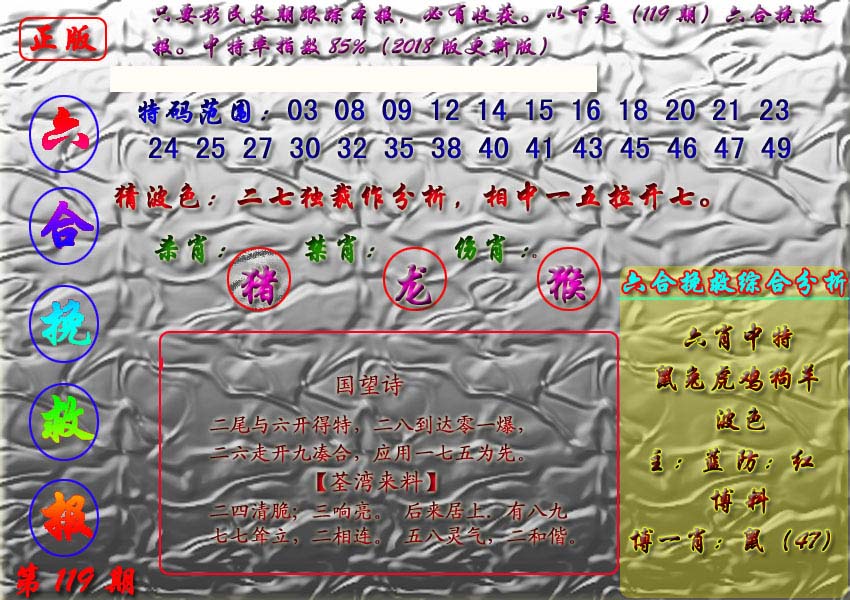 正版
只要彩民长期跟踪本报，必有收获。以下是（119期）六合挽救
报。中特率指数85%（2018版更新版）
六合挽救报
第119期
特码范围：03 08 09 12 14 15 16 18 20 21 23
24 25 27 30 32 35 38 40 41 43 45 46 47 49
猜波色：二七独裁作分析，相中一五拉开七。
杀肖：猪 禁肖：龙 伤肖：猴
国望诗
二尾与六开得特，二八到达零一爆，
二六走开九凑合，应用一七五为先。
【荃湾来料】
二四清脆；三响亮。 后来居上．有八九
七七耸立，二相连。 五八灵气，二和偕。
六合挽救综合分析
六肖中特
鼠兔虎鸡狗羊
波色
主：蓝防：红
博料
博一肖：鼠（47）